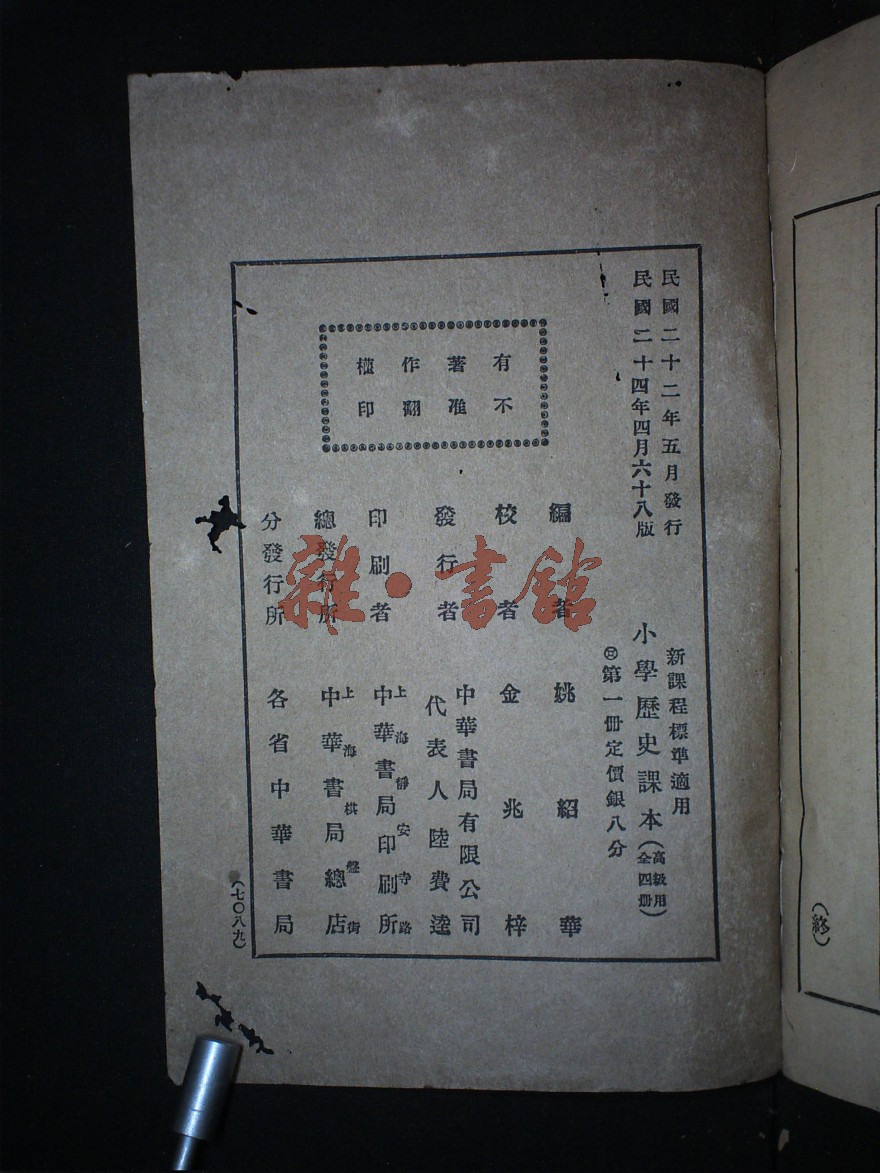 民國二十二年五月發行
民國二十四年四月六十八版
新課程標準適用
小學歷史課本(高級用全四冊)
第一冊定價銀八分
有著作權
不准翻印
編者 姚紹華
校者 金兆梓
發行者 中華書局有限公司
代表人陸費逵
印刷者 上海靜安寺路
中華書局印刷所
總發行所 上海棋盤街
中華書局總店
分發行所 各省中華書局
(七〇八九)
(終)
雜·書館